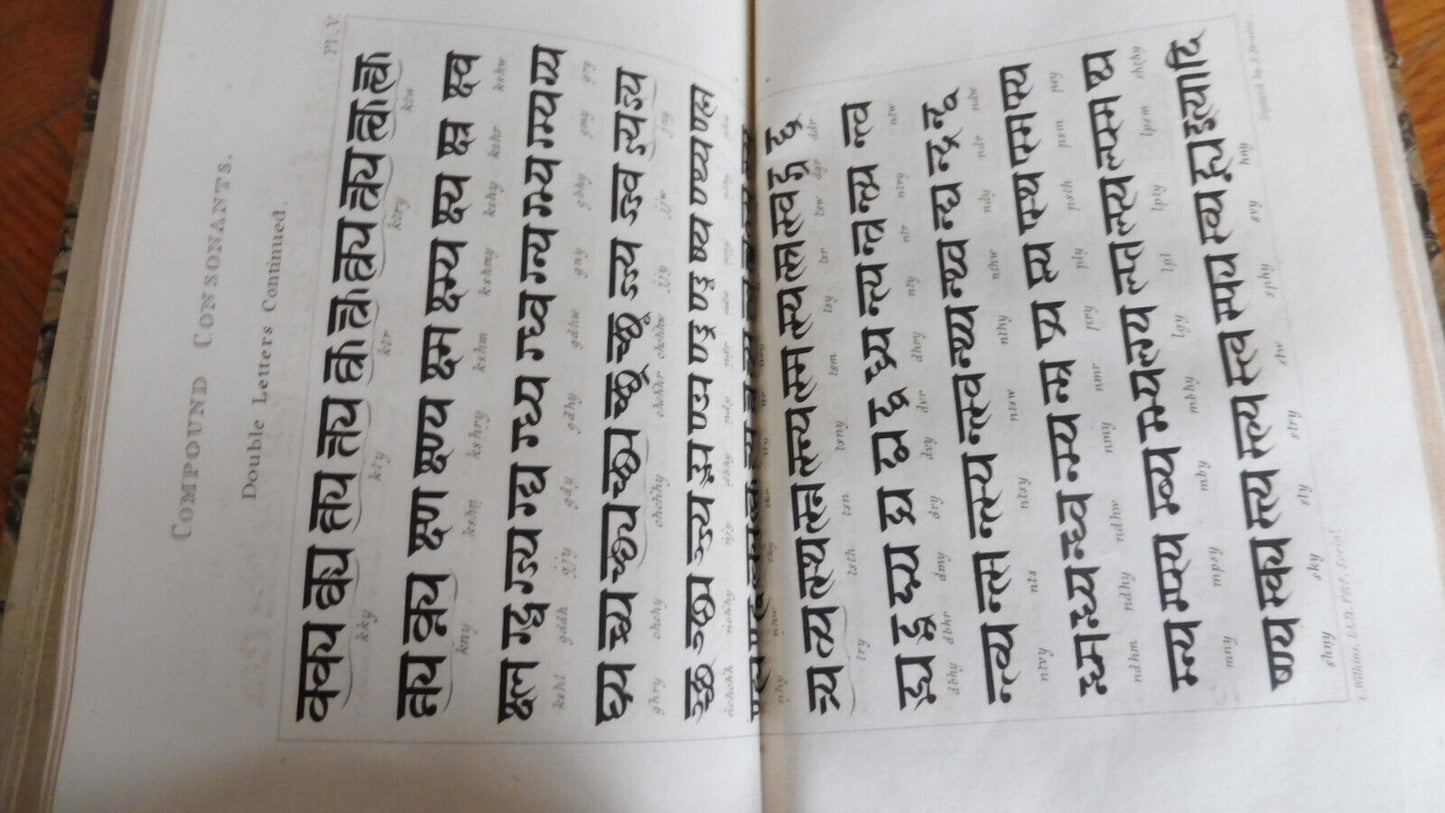 Pl. V.
COMPOUND CONSONANTS.
Double Letters Continued.
क्क्य क्क्य क्त्य क्त्य क्त्र क्त्र क्त्र्य क्त्र्य क्त्व क्त्व
kky kty ktr ktry ktw
क्न्य क्न्य क्ष्ण क्ष्ण्य क्ष्म क्ष्म्य क्ष्य क्ष्र क्ष्व
kny kshṇ kshṇy kshm kshmy kshy kshr kshw
क्ष्ल ग्द्ध ग्ज्य ग्द्य ग्ध्य ग्ध्व ग्न्य ग्भ्य ग्म्य ग्र्य
kshl gddh gjy gdy gdhy gdhw gny gbhy gmy gry
घ्र्य च्च्य च्छ्य च्छ्य च्छ्र च्छ्व ज्ज्य ज्ज्व ज्ञ्य ज्ञ्य
ghry chchy chchhy chchhr chchhw jjy jjw jny
ञ्च्छ ञ्च्छ्य ञ्ज्य
त्र्य त्र्य त्स्थ्य त्स्न त्स्न्य त्स्म त्स्य त्स्र त्स्व द्ग्र द्द्र
try tsth tsn tsny tsm tsy tsr tsw dgr ddr
द्भ्य द्भ्र द्म्य द्र्य द्व्य द्व्र ध्र्य न्त्य न्त्र न्त्र्य न्त्व
dbhy dbhr dmy dry dvy dvr dhry nty ntr ntry ntw
न्त्व्य न्त्स न्त्स्य न्त्स्व न्थ्य न्थ्व न्द्य न्द्र न्द्व
ntvy nts ntsy ntsw nthy nthw ndy ndr ndw
न्ध्म न्ध्य न्ध्व न्म्य न्म्र प्र्य प्ल्य प्स्थ्य प्स्म प्स्य
ndhm ndhy ndhw nmy nmr pry ply psth psm psy
म्न्य म्प्स्य म्ब्य म्भ्य ल्ग्य ल्प्त ल्प्त्य ल्प्स्म ष्ठ्य
mny mpsy mby mbhy lgy lpt lpty lpsm shṭhy
ष्ण्य स्क्य स्त्य स्त्र्य स्त्व स्फ्य स्व्य ह्न्य इत्यादि
shṇy sky sty stry stw sphy svy hny
C. Wilkins, LLD. FRS. Script!